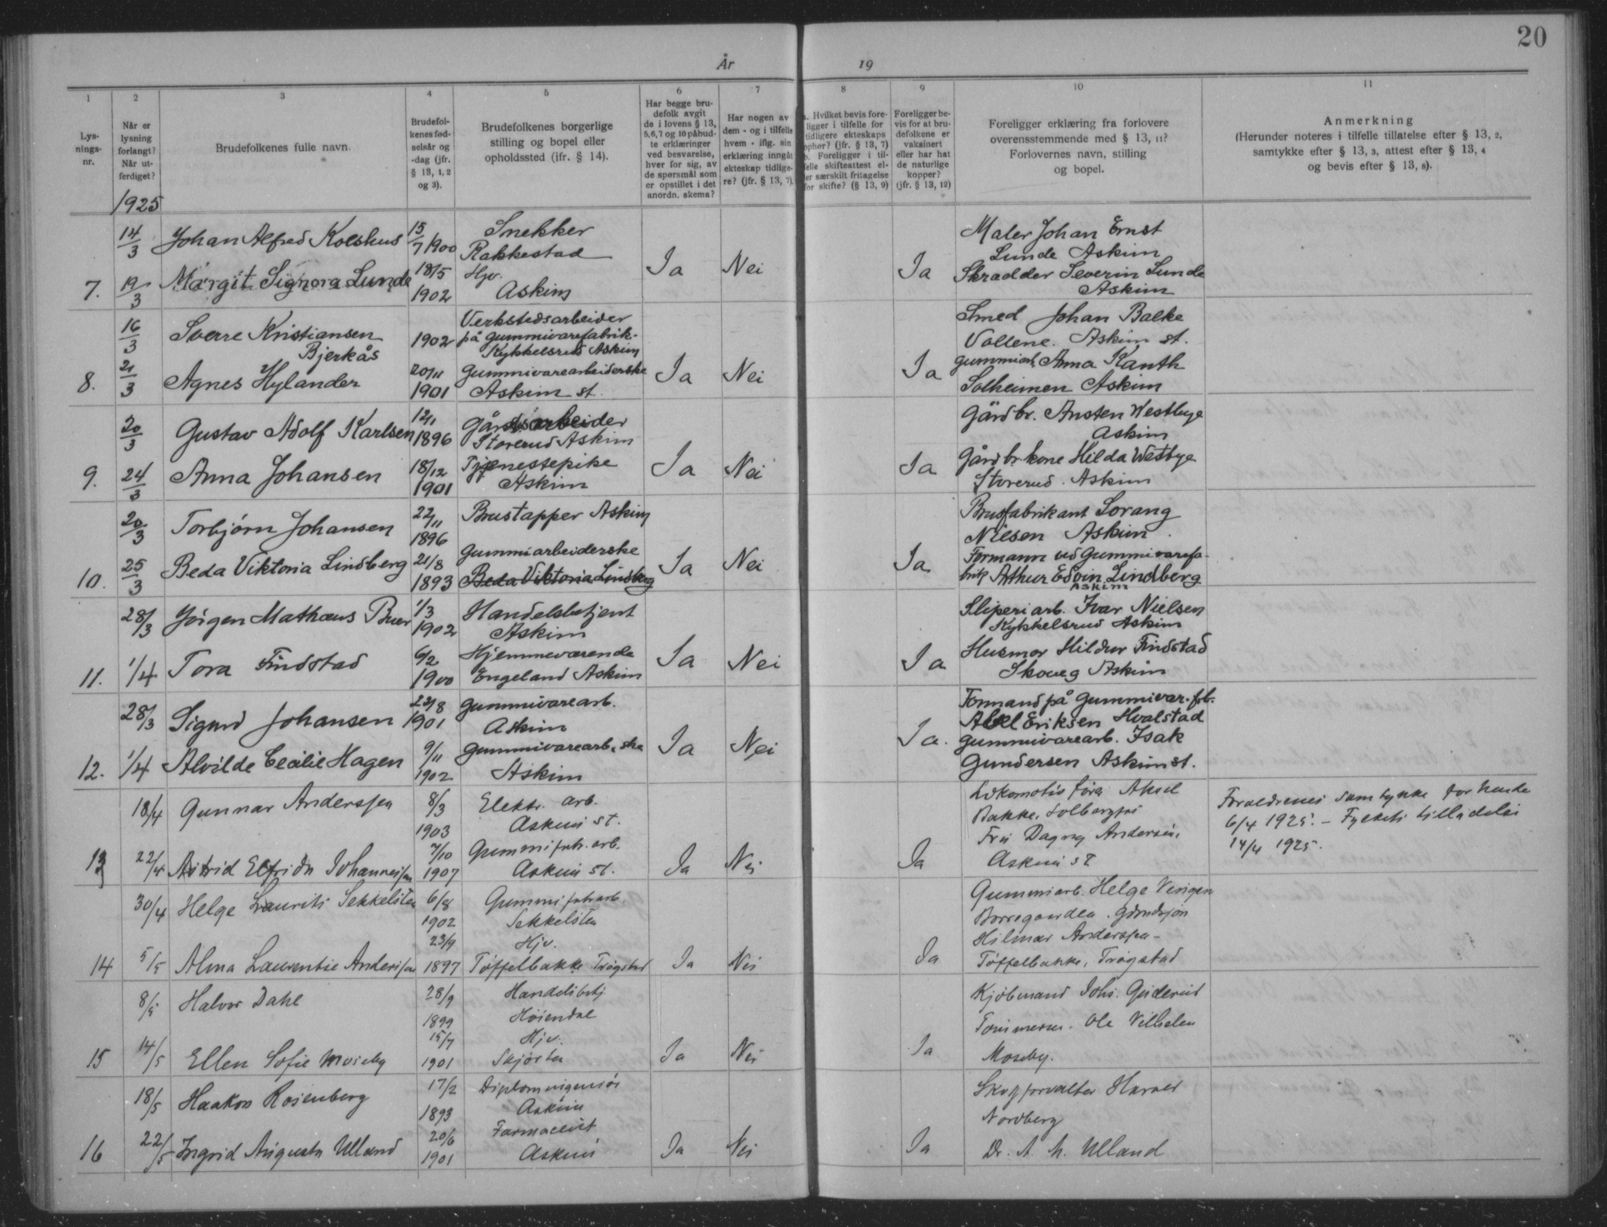 20
År 19
1 2 3 4 5 6 7 8 9 10 11
Lysningsnr.
Når er lysning forlangt? Når utferdiget?
Brudefolkenes fulle navn.
Brudefolkenes fødselsår og -dag (jfr. § 13, 1, 2 og 3).
Brudefolkenes borgerlige stilling og bopel eller opholdssted (ifr. § 14).
Har begge brudefolk avgit de i lovens § 13, 5,6,7 og 10 påbudte erklæringer ved besvarelse, hver for sig, av de spørsmål som er opstillet i det anordn. skema?
Har nogen av dem - og i tilfelle hvem - iflg. sin erklæring inngått ekteskap tidligere? (jfr. § 13, 7).
a. Hvilket bevis foreligger i tilfelle for tidligere ekteskaps ophør? (jfr. § 13, 7) b. Foreligger i tilfelle skifteattest eller særskilt fritagelse for skifte? (§ 13, 9)
Foreligger bevis for at brudefolkene er vaksinert eller har hat de naturlige kopper? (jfr. § 13, 12)
Foreligger erklæring fra forlovere overensstemmende med § 13, 11? Forlovernes navn, stilling og bopel.
Anmerkning (Herunder noteres i tilfelle tillatelse efter § 13, 2, samtykke efter § 13, 3, attest efter § 13, 4 og bevis efter § 13, 8).
1925
14/3 Johan Alfred Kolshus 15/7 1900 Snekker Rakkestad Maler Johan Ernst Lunde Askim
7. 19/3 Margit Signora Lunde 18/5 1902 Hjv. Askim Ja Nei Ja Skradder Severin Lunde Askim
16/3 Sverre Kristiansen Bjerkås 1902 Verkstedsarbeider på gummivarefabrik. Kykkelsrud Askim Smed Johan Balke Vollene. Askim st.
8. 21/3 Agnes Hylander 20/11 1901 Gummivarearbeiderske Askim st. Ja Nei Ja gummiarb. Anna Kanth Solheimen Askim
20/3 Gustav Adolf Karlsen 12/1 1896 Gårdsarbeider Storerud Askim Gårdbr. Ansten Westbye Askim
9. 24/3 Anna Johansen 18/12 1901 Tjenestepike Askim Ja Nei Ja Gårdbr kone Hilda Westbye Storerud. Askim
20/3 Torbjørn Johansen 22/11 1896 Brustapper Askim Brusfabrikant Lorang Nilsen Askim.
10. 25/3 Beda Viktoria Lindberg 21/8 1893 Gummiarbeiderske Beda Viktoria Lindberg Ja Nei Ja Formann ved Gummivarefabrik Arthur Edvin Lindberg Askim
28/3 Jørgen Mathæus Buer 1/3 1902 Handelsbetjent Askim Sliperiarb. Ivar Nielsen Kykkelsrud Askim
11. 1/4 Tora Findstad 6/2 1900 Hjemmeværende Engeland Askim Ja Nei Ja Husmor Hildur Findstad Skoveg Askim
28/3 Sigurd Johansen 22/8 1901 gummivarearb. Askim Formand på Gummivar.fab. Abel Eriksen Hvalstad
12. 1/4 Alvilde Cecilie Hagen 9/11 1902 gummivarearb.ske Askim Ja Nei Ja. gummivarearb. Isak Gundersen Askim st.
18/4 Gunnar Anderssen 8/3 1903 Elektr. arb. Askim st. Lokomotivfører Aksel Bakke, Frü Dagny Andersen, Askim st Foraldrenes samtykke for hende 6/4 1925. – Fylkets tilladelse 14/4 1925.
13 22/4 Astrid Elfrida Johannesen 7/10 1907 Gummifabr.arb. Askim st. Ja Nei Ja
30/4 Helge Laurits Sekkelsten 6/8 1902 Gummifabrarb Sekkelsten Gummiarb. Helge
14 5/5 Alma Laurentie Anderssen 23/9 1897 Hjv. Tøffelbakke Trøgstad Ja Nei Ja Hilmar Anderssen - Tøffelbakke, Trøgstad
8/5 Halvor Dahl 28/9 1899 Handelsbetj Høiendal Kjøbmand Johs.
15 14/5 Ellen Sofie Moseby 15/7 1901 Hjv. Ja Nei Ja Ole Vilhelm Moseby.
18/5 Haakon Rosenberg 17/2 1893 Diplomingeniør Askim Skogforvalter Harald Nordberg
16 22/5 Ingrid Augusta Ulland 20/6 1901 Farmaceut Askim Ja Nei Ja Dr. A. M. Ulland